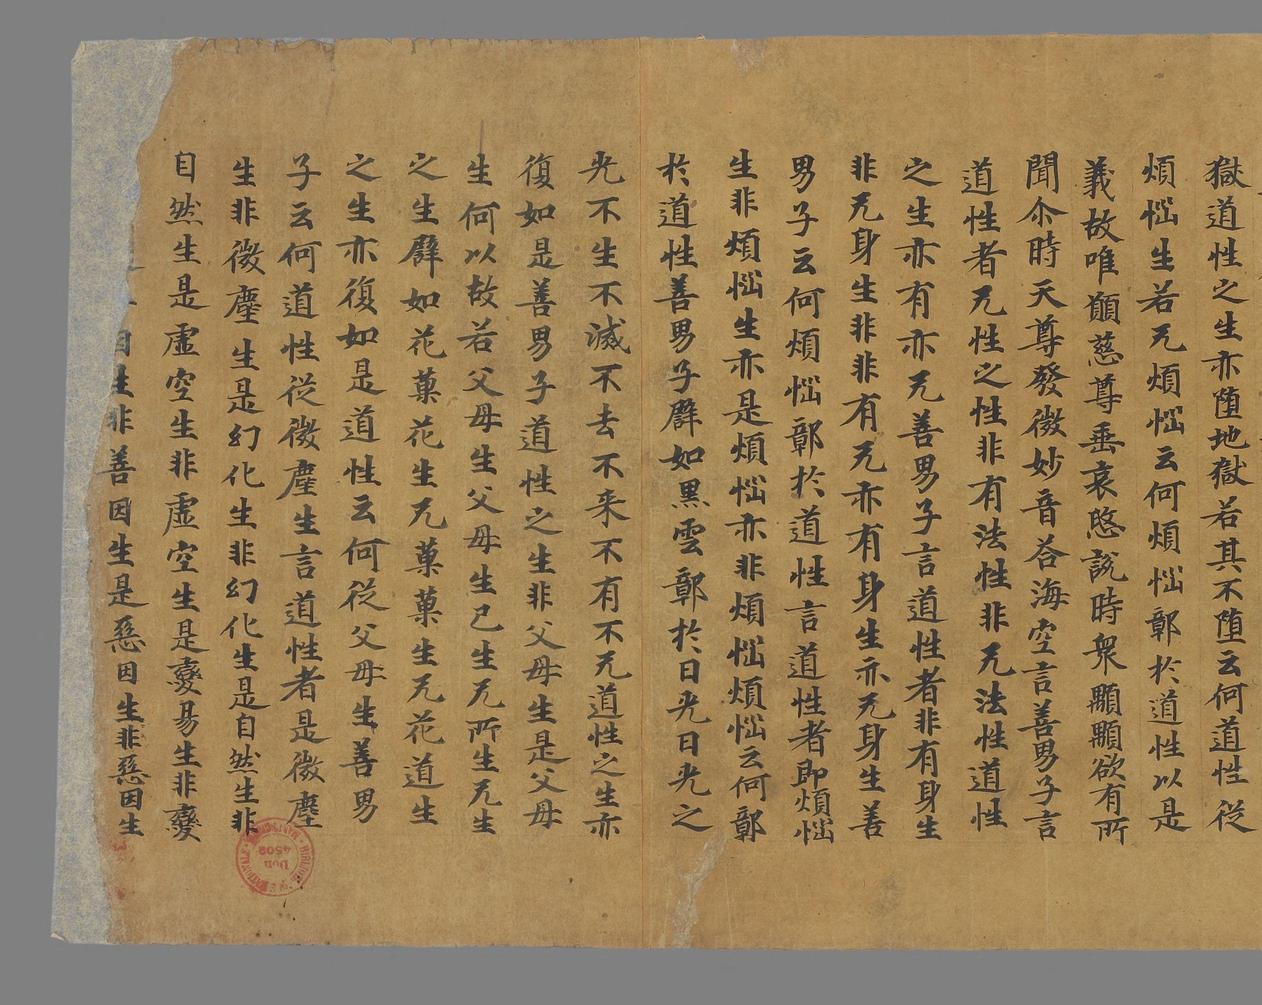 獄道性之生亦堕地獄若其不堕云何道性從
煩惱生若无煩惱云何煩惱鄣於道性以是
義故唯願慈尊垂哀愍說時衆顒顒欲有所
聞尒時天尊發微妙音荅海空言善男子言
道性者无性之性非有法性非无法性道性
之生亦有亦无善男子言道性者非有身生
非无身生非非有无亦有身生亦无身生善
男子云何煩惱鄣於道性言道性者即煩惱
生非煩惱生亦是煩惱亦非煩惱煩惱云何鄣
於道性善男子譬如黑雲鄣於日光日光之
光不生不滅不去不来不有不无道性之生亦
復如是善男子道性之生非父母生是父母
生何以故若父母生父母生已生无所生无生
之生譬如花菓花生无菓菓生无花道生
之生亦復如是道性云何從父母生善男
子云何道性從微塵生言道性者是微塵
生非微塵生是幻化生非幻化生是自然生非
自然生是虛空生非虛空生是變易生非變
因生非善因生是惡因生非惡因生